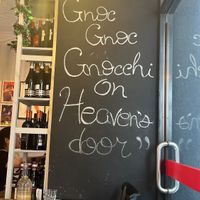 Gnoc
Gnoc
Gnocchi
on
Heaven's
door”